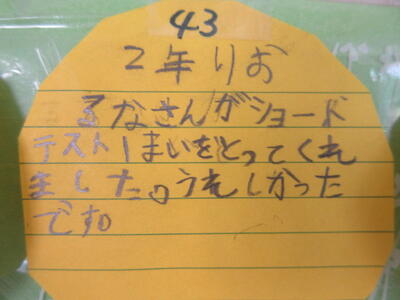 43
2年りお
るなさんがショード
テスト1まいをとってくれ
ました。うれしかった
です。